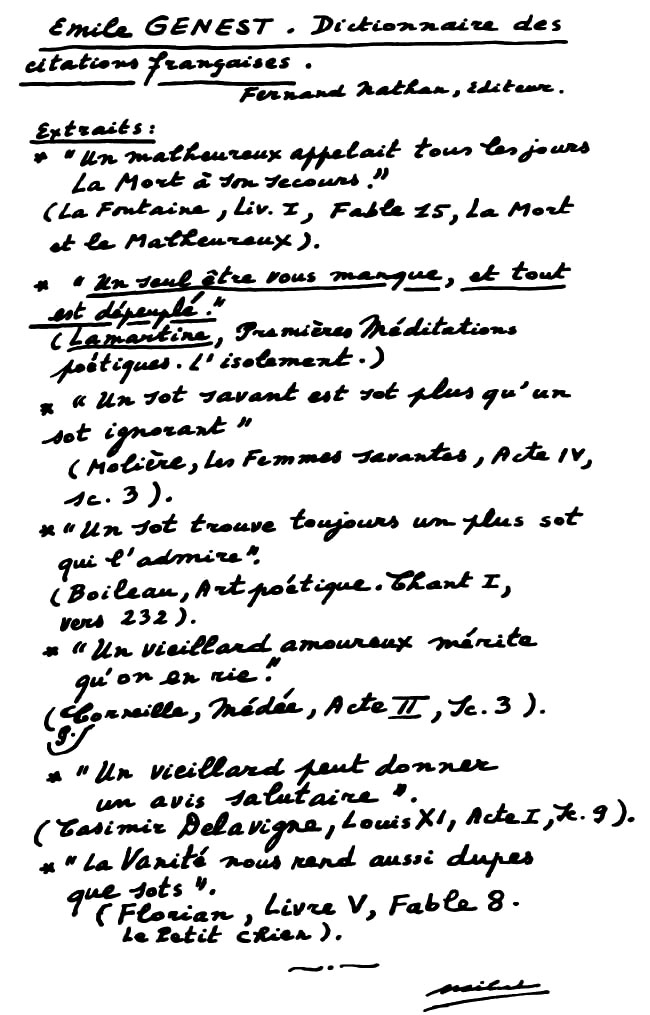 Emile GENEST. Dictionnaire des
citations françaises.
Fernand Nathan, Editeur.
Extraits:
* "Un malheureux appelait tous les jours
La Mort à son secours."
(La Fontaine, Liv. I, Fable 15, La Mort
et le Malheureux).
* "Un seul être vous manque, et tout
est dépeuplé."
(Lamartine, Premières Méditations
poétiques. L'isolement.)
* "Un sot savant est sot plus qu'un
sot ignorant"
(Molière, Les Femmes savantes, Acte IV,
sc. 3).
* "Un sot trouve toujours un plus sot
qui l'admire".
(Boileau, Art poétique. Chant I,
vers 232).
* "Un vieillard amoureux mérite
qu'on en rie."
(Corneille, Médée, Acte II, Sc. 3).
* "Un vieillard peut donner
un avis salutaire".
(Casimir Delavigne, Louis XI, Acte I, Sc. 9).
* "La Vanité nous rend aussi dupes
que sots".
(Florian, Livre V, Fable 8.
Le Petit chien).